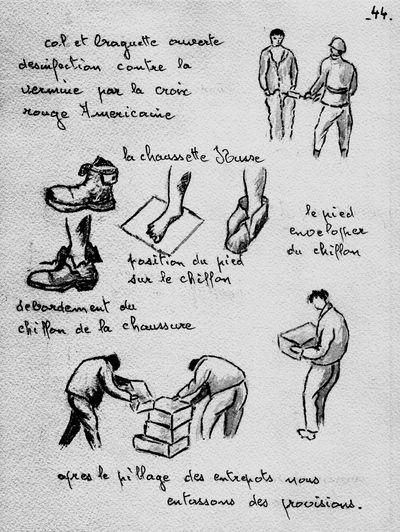 _44.
col et braguette ouverte
desinfection contre la
vermine par la croix
rouge Americaine
la chaussette Russe
le pied
envelopper
du chiffon
position du pied
sur le chiffon
debordement du
chiffon de la chaussure
apres le pillage des entrepots nous
entassons des provisions.